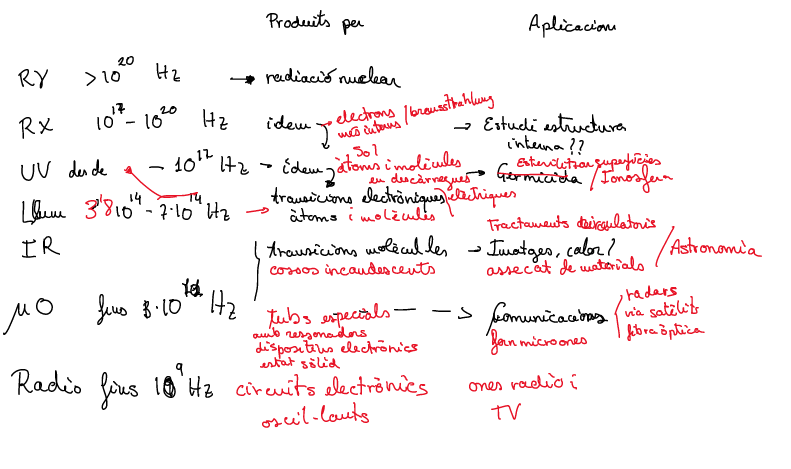 Produits per Aplicacions
Rγ >10^20 Hz → radiació nuclear
RX 10^17 - 10^20 Hz idem electrons més interns / bremsstrahlung → Estudi estructura interna??
UV desde - 10^17 Hz → idem Sol àtoms i molècules en descàrregues elèctriques → Germicida Esterilitzar superfícies / Ionosfera
Llum 3'8 10^14 - 7·10^14 Hz → transicions electròniques àtoms i molècules
IR transicions molècules → Imatges, calor?
cossos incandescents Tractaments circulatoris
assecat de materials / Astronomia
μO fins 3·10^11 Hz tubs especials — → Comunicacions radars
amb ressonadors via satèlit
dispositius electrònics forn microones fibra òptica
estat sòlid
Radio fins 10^9 Hz circuits electrònics ones radio i
oscil·lants TV